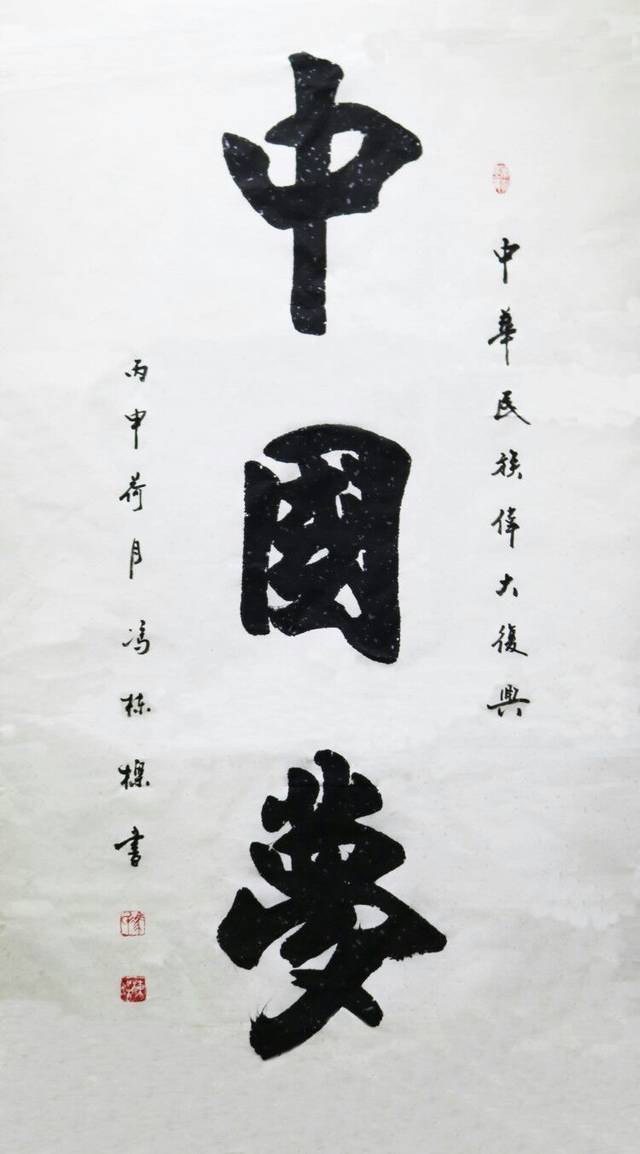 中華民族偉大復興
中國夢
丙申荷月冯栋樑书